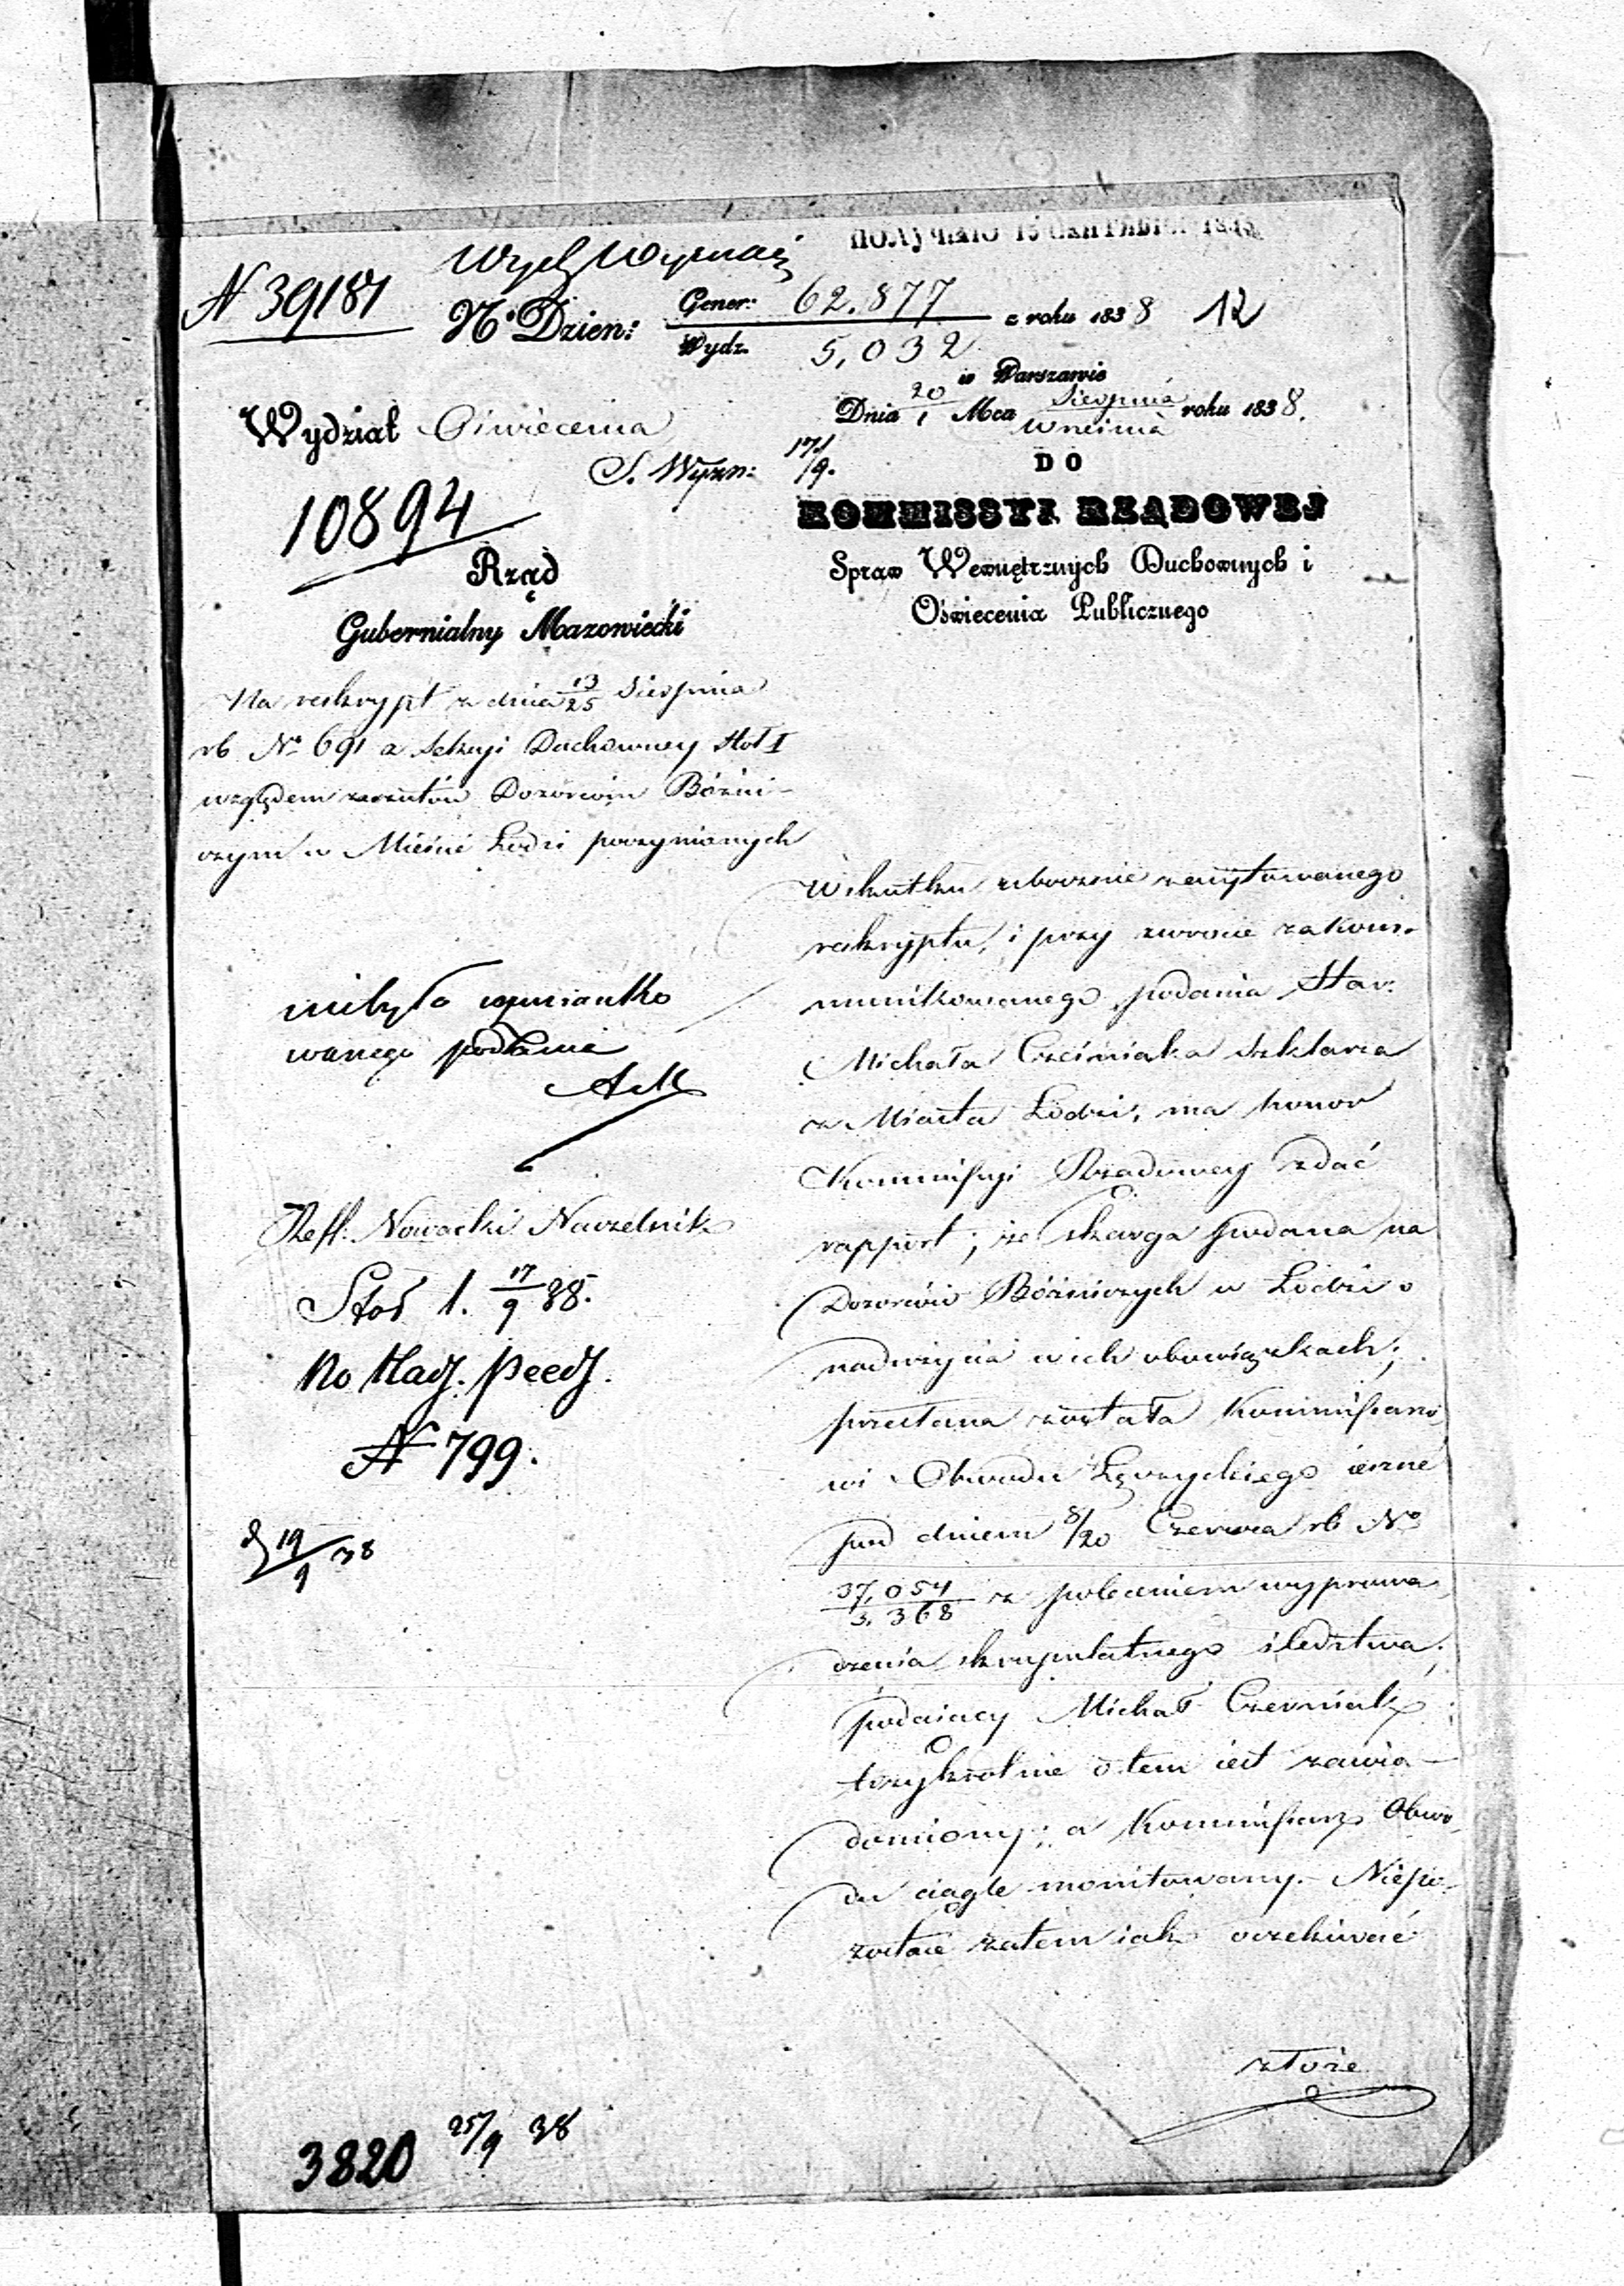 ПОЛУЧЕНО 15 СЕНТЯБРЯ
N 39187
Wydz Wyznań
N. Dzien: Gener: 62.877
Wydz. 5,032
z roku 1838
12
w Warszawie
Dnia 20/1 Mca Sierpnia/Wrześnià roku 1838.
Wydział Oświecenia
S. Wyzn:
17/9.
DO
KOMMISSYI RZĄDOWEJ
Spraw Wewnętrznych Duchownych i
Oświecenia Publicznego
10894
Rząd
Gubernialny Mazowiecki
Na reskrypt z dnia 13/25 Sierpnia
rb No 691 z Sekcyi Duchowney Stoł I
względem zarzutów Dozorcòm Bóżni-
czym w Mieście Łodzi poczynionych
W skutku ubocznie zacytowanego
reskryptu, i przy zwrocie zakom-
munikowanego podania Star:
Michała Szklarza
z Miasta Łodzi, ma honor
Kommissyi Rządowey zdać
rapport; że skarga podana na
Dozorców Bóżniczych w Łodzi o
nadużycia w ich obowiązkach;
przesłana została Kommissarzo
wi Obwodu Łęczyckiego ieszcze
pod dniem 8/20 Czerwca rb No
37,054/3.368 z poleceniem wyprowa
dzenia skrupulatnego śledztwa;
podaiący Michał Czerniak
trzykrotnie o tem iest zawia-
domiony; a Kommissarz Obwo,
du ciągle monitowany.- Niepo-
zostaie zatem iak oczekiwać
złoże
niebyło wzmianko
wanego podania
Reff. Nowacki Naczelnik
Stoł 1. 17/9 38.
No 799.
19/9 38
3820 25/9 38